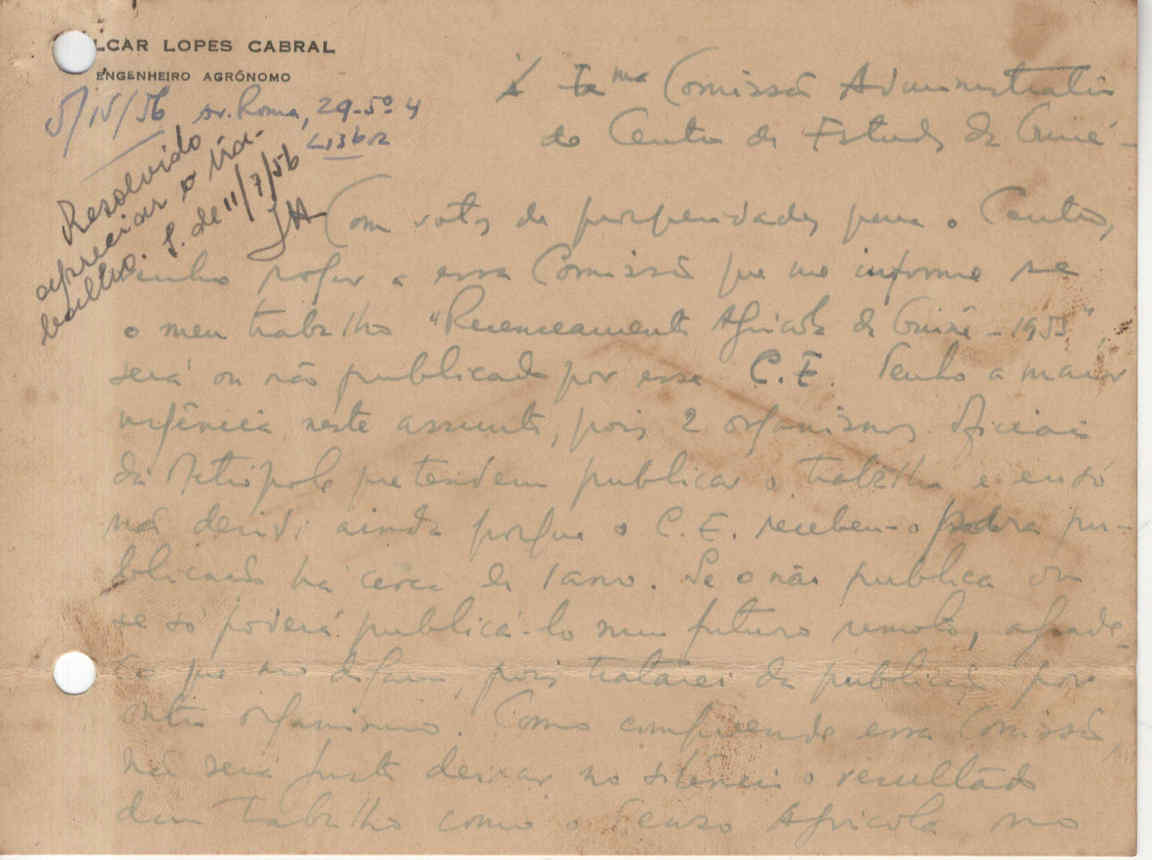 LCAR LOPES CABRAL
ENGENHEIRO AGRÓNOMO
5/IV/56 Av. Roma, 29-5º 4
Lisboa
Resolvido
apreciar o tra-
balho. S. de 11/7/56
À Exma Comissão Administrativa
do Centro de Estudos da Guiné-
Com votos de prosperidades para o Centro,
venho rogar a essa Comissão que me informe se
o meu trabalho "Recenseamento Agrícola da Guiné - 1953",
será ou não publicado por esse C.E. Tenho a maior
urgência neste assunto, pois 2 organismos oficiais
da Metrópole pretendem publicar o trabalho e eu só
não decidi ainda porque o C.E. recebeu-o para pu-
blicação há cerca de 1 ano. Se o não publica ou
se só poderá publicá-lo num futuro remoto, agrade-
ço que mo digam, pois tratarei da publicação por
outro organismo. Como compreende essa Comissão,
não será justo deixar no silêncio o resultado
dum trabalho como o Censo Agrícola no